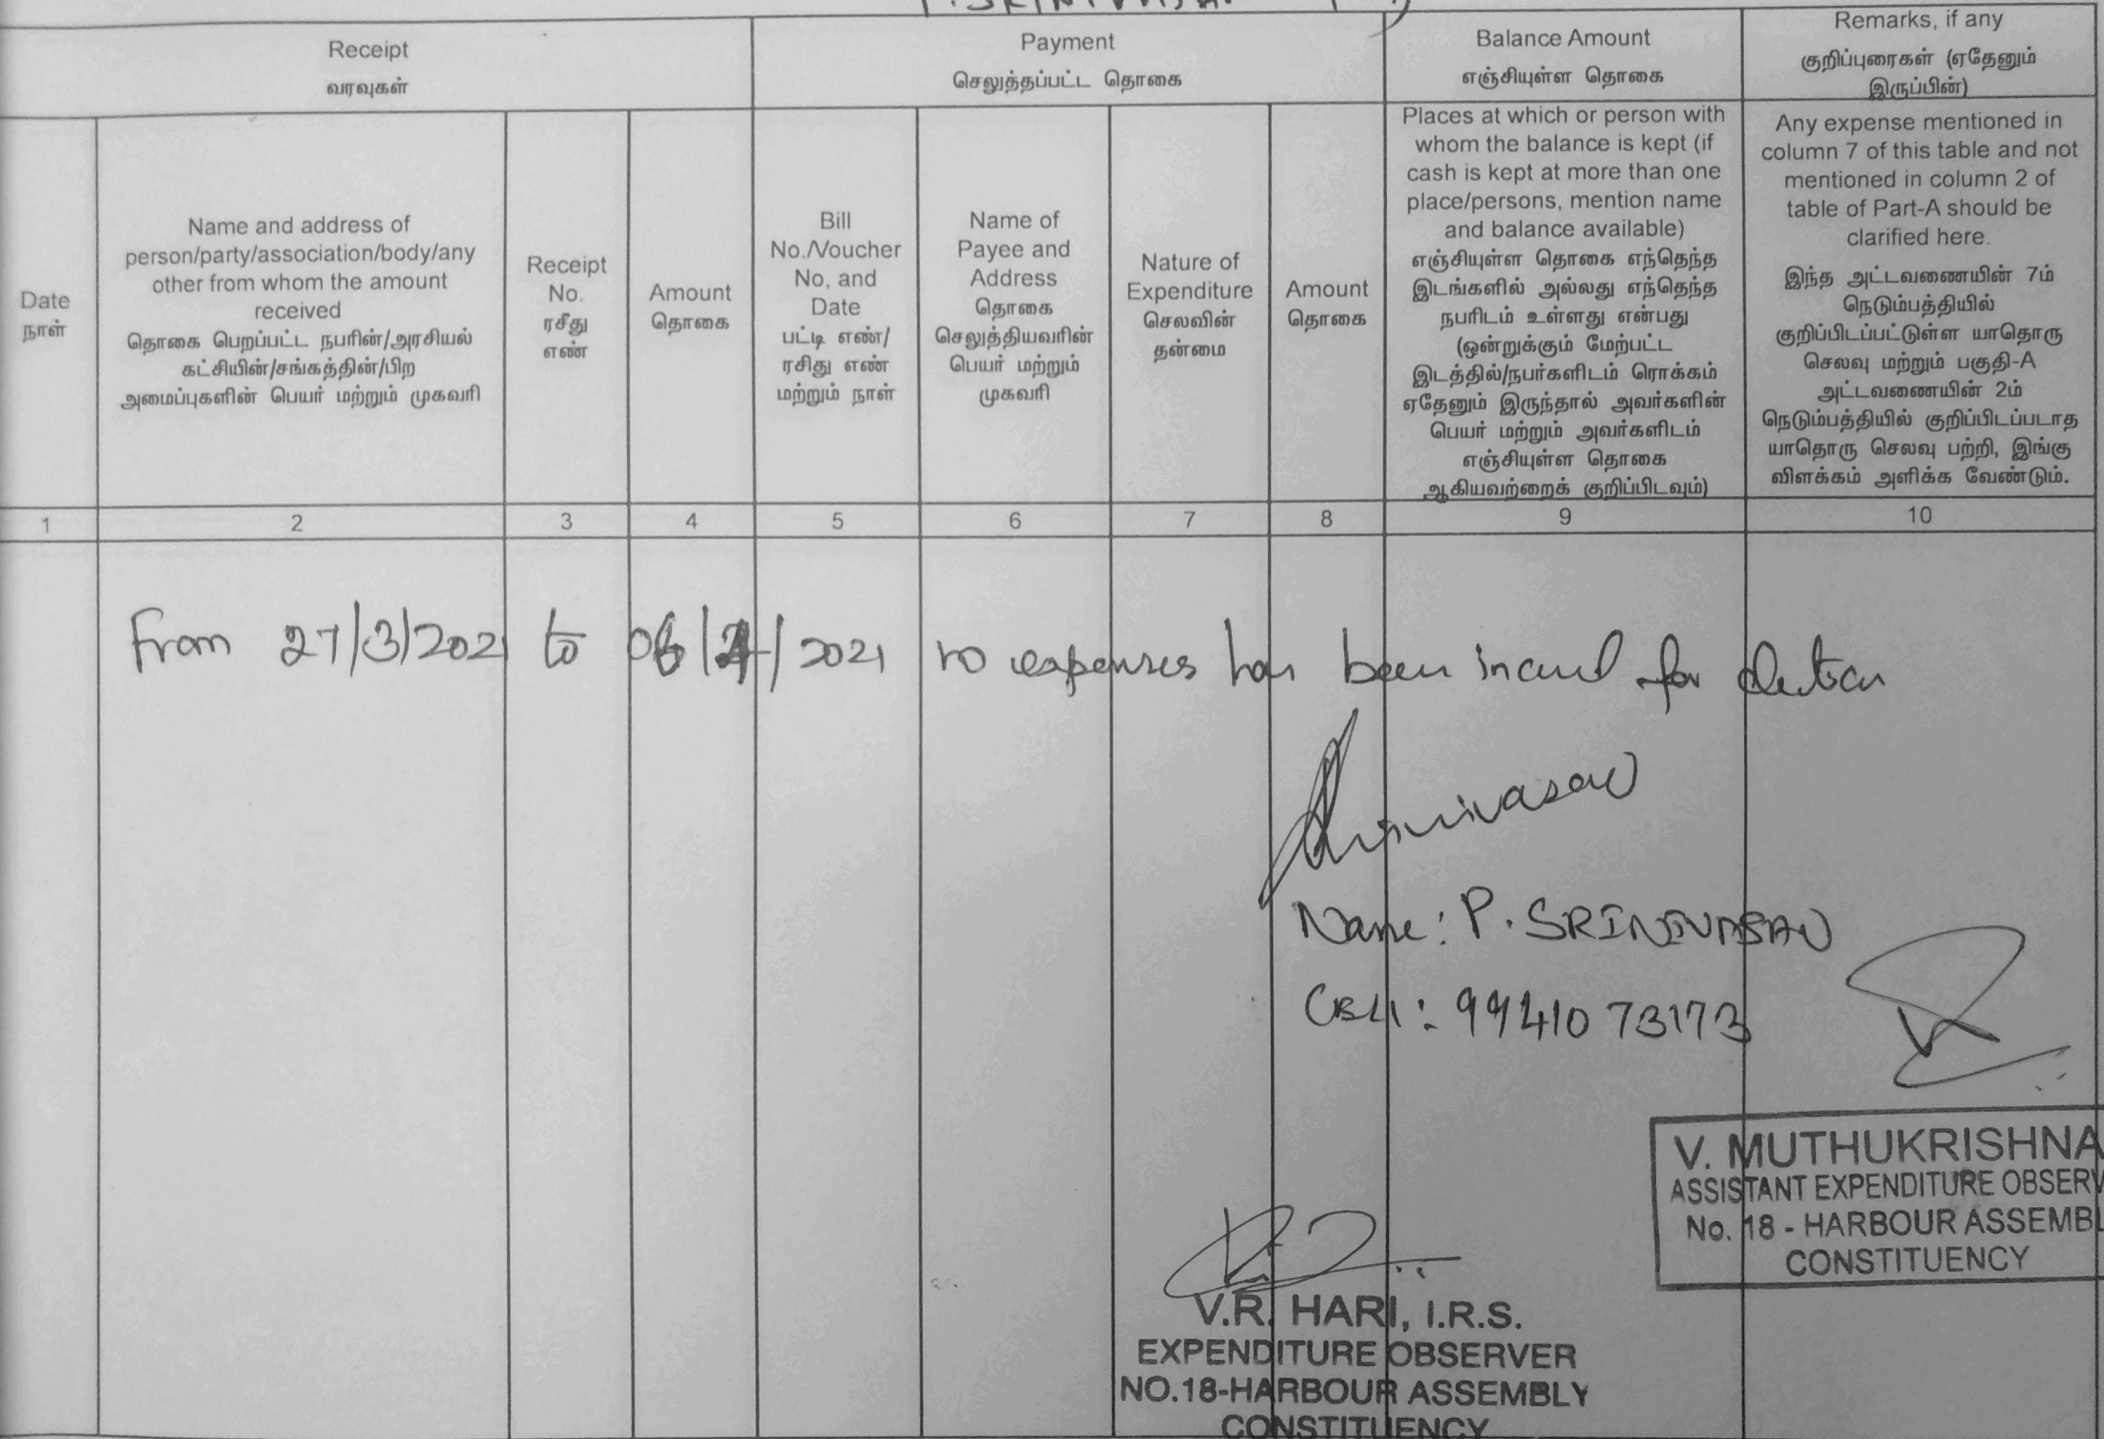 P. SRINIVASAN
Receipt
வரவுகள்
Payment
செலுத்தப்பட்ட தொகை
Balance Amount
எஞ்சியுள்ள தொகை
Remarks, if any
குறிப்புரைகள் (ஏதேனும்
இருப்பின்)
Date
நாள்
Name and address of
person/party/association/body/any
other from whom the amount
received
தொகை பெறப்பட்ட நபரின்/அரசியல்
கட்சியின்/சங்கத்தின்/பிற
அமைப்புகளின் பெயர் மற்றும் முகவரி
Receipt
No.
ரசீது
எண்
Amount
தொகை
Bill
No./Voucher
No, and
Date
பட்டி எண்/
ரசிது எண்
மற்றும் நாள்
Name of
Payee and
Address
தொகை
செலுத்தியவரின்
பெயர் மற்றும்
முகவரி
Nature of
Expenditure
செலவின்
தன்மை
Amount
தொகை
Places at which or person with
whom the balance is kept (if
cash is kept at more than one
place/persons, mention name
and balance available)
எஞ்சியுள்ள தொகை எந்தெந்த
இடங்களில் அல்லது எந்தெந்த
நபரிடம் உள்ளது என்பது
(ஒன்றுக்கும் மேற்பட்ட
இடத்தில்/நபர்களிடம் ரொக்கம்
ஏதேனும் இருந்தால் அவர்களின்
பெயர் மற்றும் அவர்களிடம்
எஞ்சியுள்ள தொகை
ஆகியவற்றைக் குறிப்பிடவும்)
Any expense mentioned in
column 7 of this table and not
mentioned in column 2 of
table of Part-A should be
clarified here.
இந்த அட்டவணையின் 7ம்
நெடும்பத்தியில்
குறிப்பிடப்பட்டுள்ள யாதொரு
செலவு மற்றும் பகுதி-A
அட்டவணையின் 2ம்
நெடும்பத்தியில் குறிப்பிடப்படாத
யாதொரு செலவு பற்றி, இங்கு
விளக்கம் அளிக்க வேண்டும்.
1 2 3 4 5 6 7 8 9 10
From 27/3/2021 to 06/4/2021 no expenses has been incured for election
Srinivasan
Name: P. SRINIVASAN
Cell: 99410 73173
V. MUTHUKRISHNA
ASSISTANT EXPENDITURE OBSERV
No. 18 - HARBOUR ASSEMBL
CONSTITUENCY
V.R. HARI, I.R.S.
EXPENDITURE OBSERVER
NO.18-HARBOUR ASSEMBLY
CONSTITUENCY